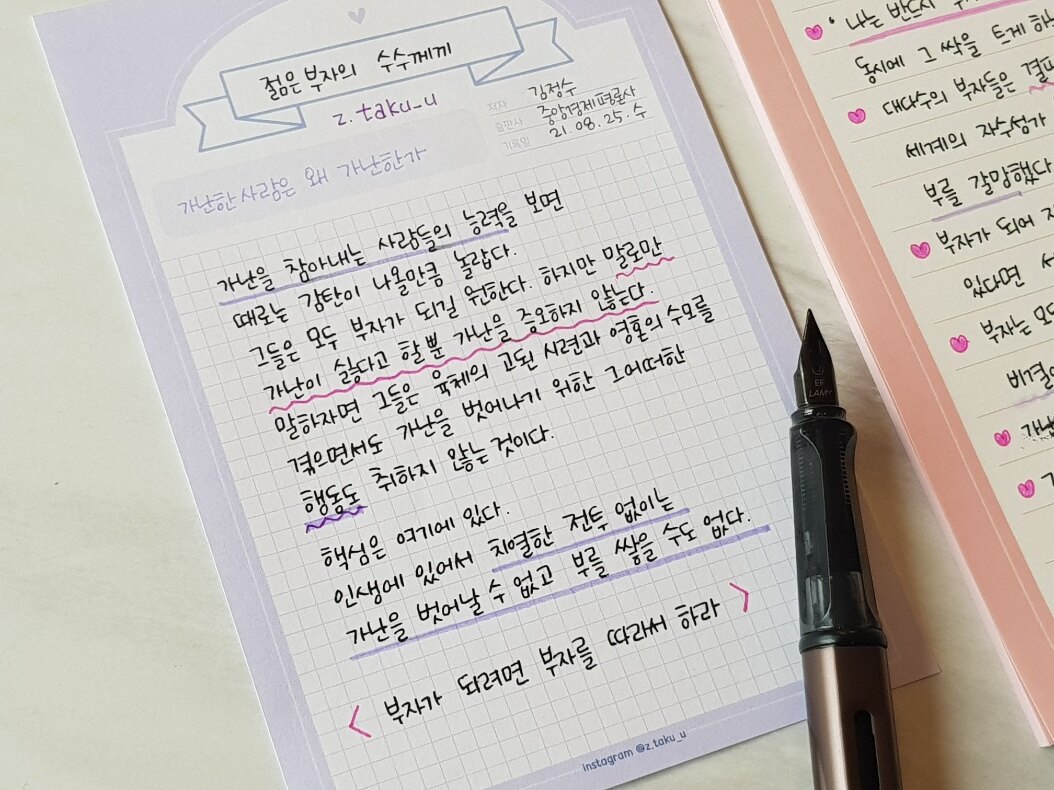 젊은 부자의 수수께끼
z.taku_u
저자 김정수
출판사 중앙경제평론사
기록일 21.08.25.수
가난한 사람은 왜 가난한가
가난을 참아내는 사람들의 능력을 보면
때로는 감탄이 나올만큼 놀랍다.
그들은 모두 부자가 되길 원한다. 하지만 말로만
가난이 싫다고 할 뿐 가난을 증오하지 않는다.
말하자면 그들은 육체의 고된 시련과 영혼의 수모를
겪으면서도 가난을 벗어나기 위한 그어떠한
행동도 취하지 않는 것이다.
핵심은 여기에 있다.
인생에 있어서 치열한 전투 없이는
가난을 벗어날 수 없고 부를 쌓을 수도 없다.
< 부자가 되려면 부자를 따라서 하라 >
instagram @z.taku_u
EF
LAMY
' 나는 반드시
동시에 그 싹을 트게 하
대다수의 부자들은 결
세계의 자수성가
부를 갈망했다
부자가 되어
있다면
부자는 모
가난